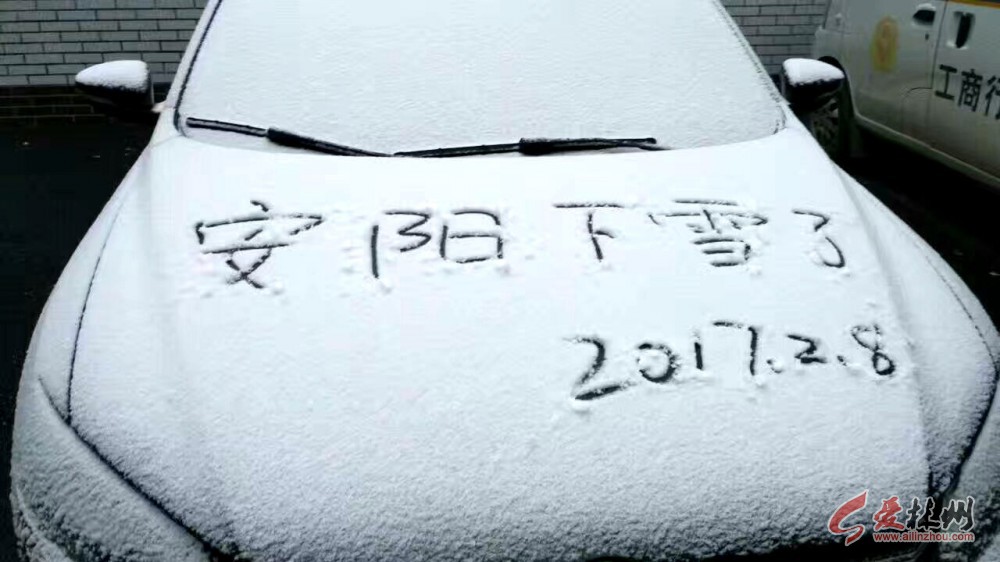 工商行
安阳下雪了
2017.2.8
爱林州
www.ailinzhou.com